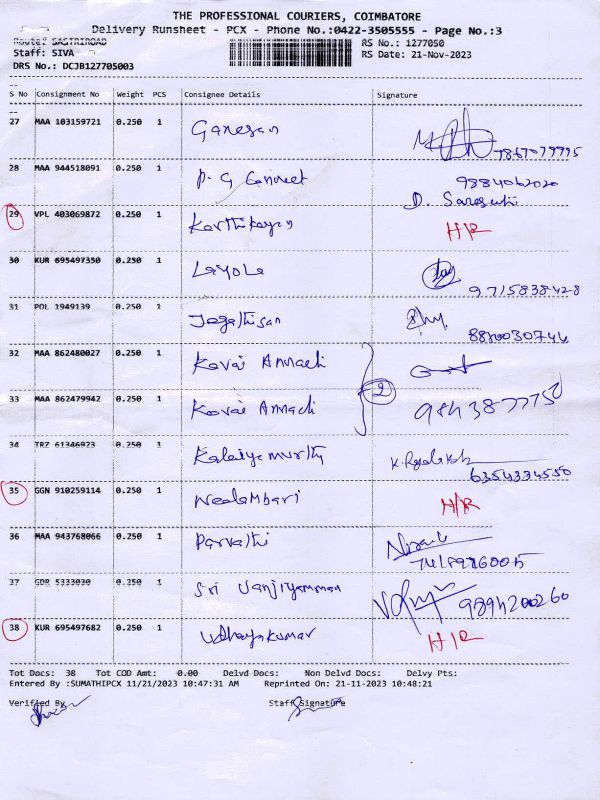 THE PROFESSIONAL COURIERS, COIMBATORE
Delivery Runsheet - PCX - Phone No.:0422-3505555 - Page No.:3
Route: SASTRIROAD
RS No.: 1277050
Staff: SIVA
RS Date: 21-Nov-2023
DRS No.: DCJB127705003
S No Consignment No Weight PCS Consignee Details Signature
27 MAA 103159721 0.250 1 Ganesan
28 MAA 944518091 0.250 1 P. G 9884062020
D.
29 VPL 403069872 0.250 1 Karthikeyan H/R
30 KUR 695497350 0.250 1 Layola
9715838428
31 POL 1949139 0.250 1 Jegathisan
8870030744
32 MAA 862480027 0.250 1 Kovai Annachi
2
33 MAA 862479942 0.250 1 Kovai Annachi 9843877750
34 TRZ 61346923 0.250 1 Kalaiyamurthy K.
6354334550
35 GGN 910259114 0.250 1 Neelambari H/R
36 MAA 943768066 0.250 1 Parvathi
37 GDR 5333030 0.250 1 Sri Vanjiyamman 9894200260
38 KUR 695497682 0.250 1 Udhayakumar H/R
Tot Docs: 38 Tot COD Amt: 0.00 Delvd Docs: Non Delvd Docs: Delvy Pts:
Entered By :SUMATHIPCX 11/21/2023 10:47:31 AM Reprinted On: 21-11-2023 10:48:21
Verified By Staff Signature